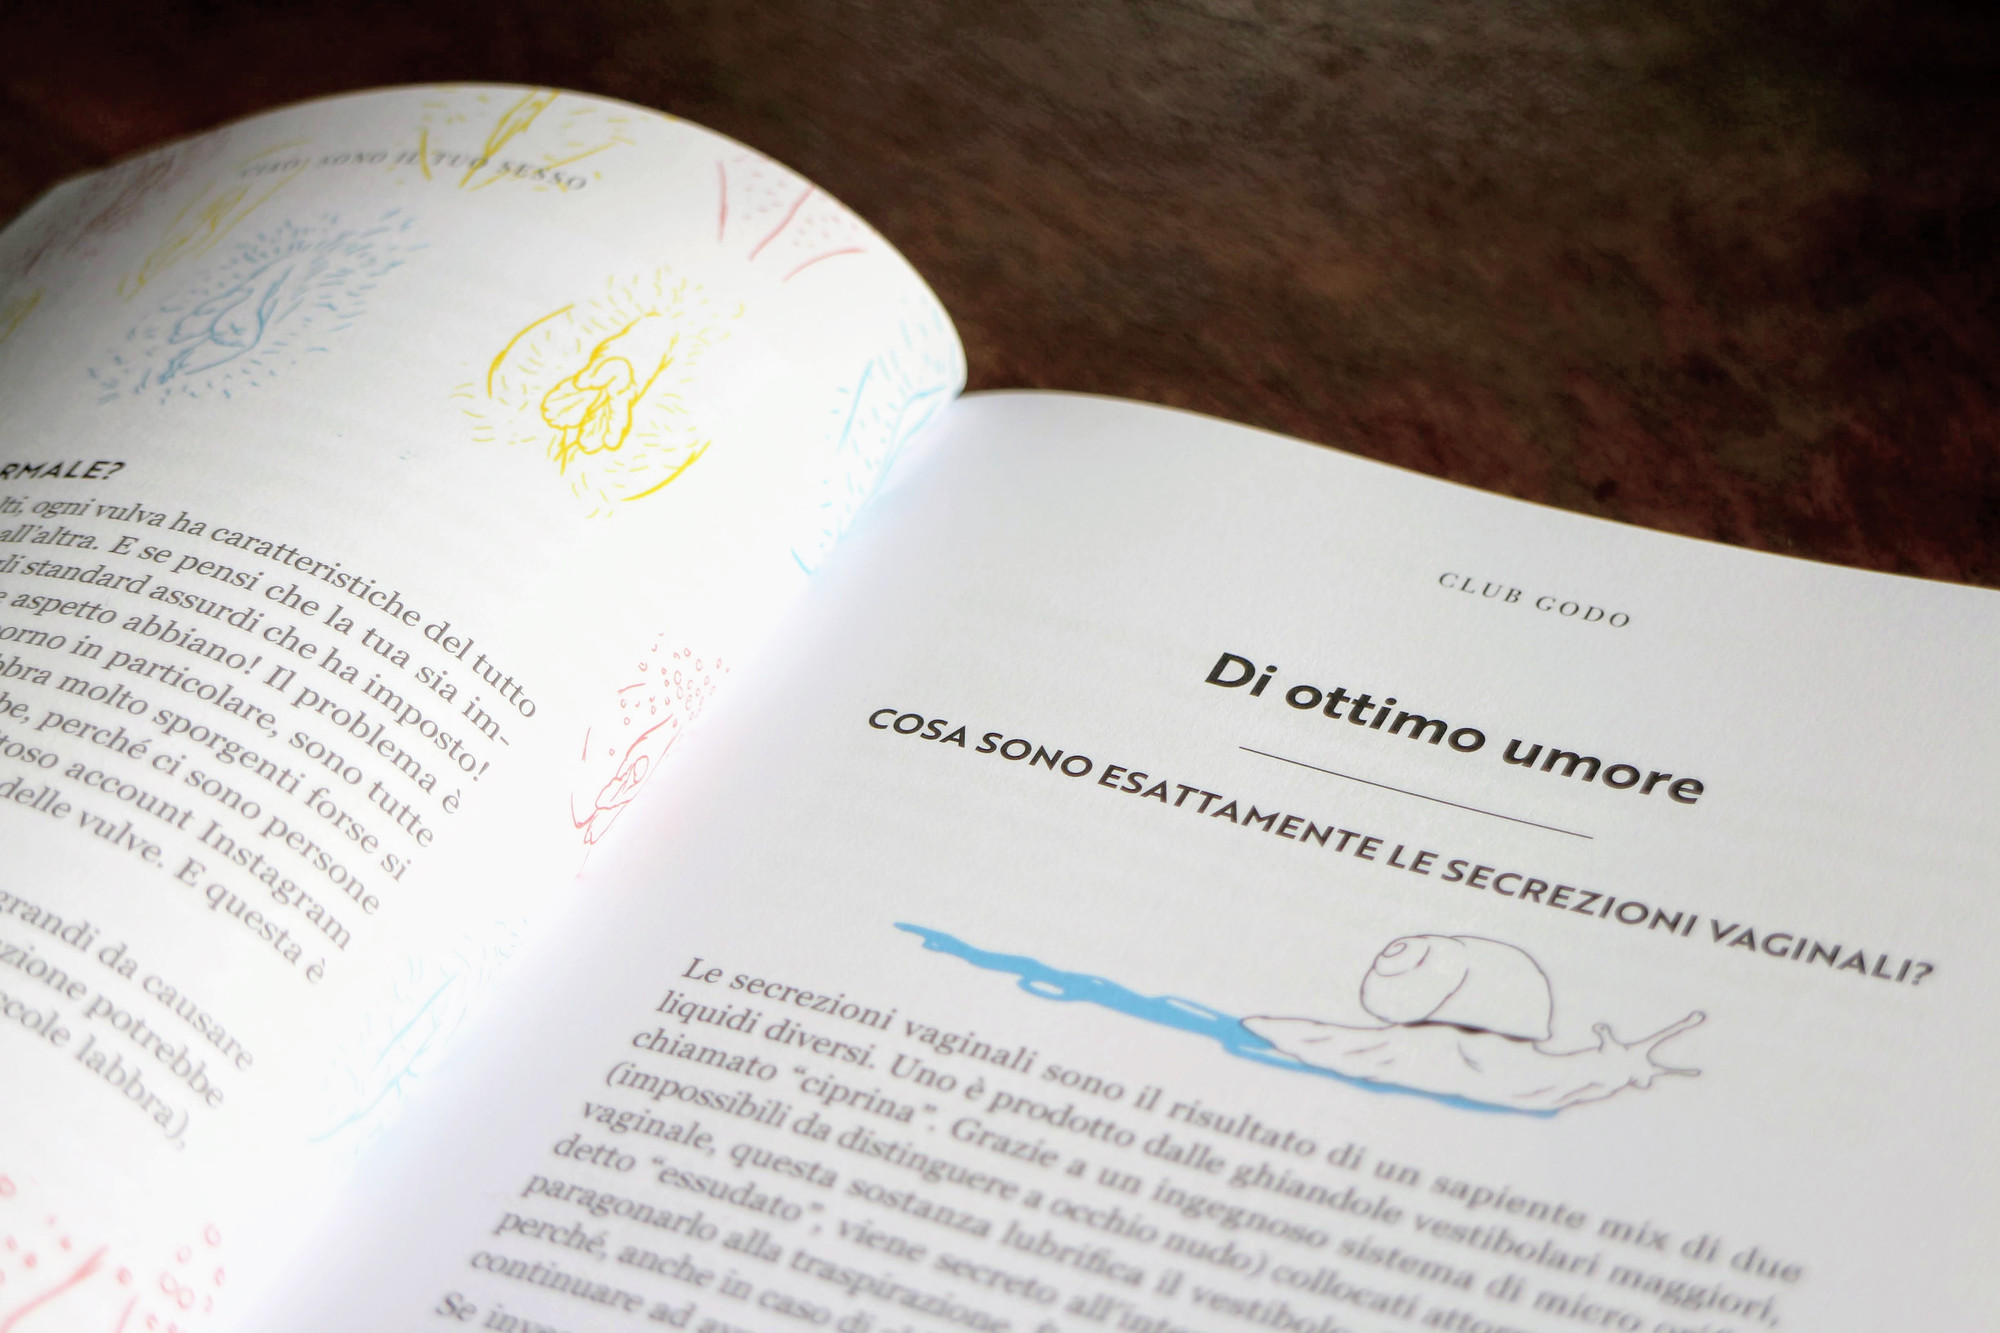 CIAO! SONO IL TUO SESSO
RMALE?
lti, ogni vulva ha caratteristiche del tutto
all'altra. E se pensi che la tua sia im-
li standard assurdi che ha imposto!
e aspetto abbiano! Il problema è
orno in particolare, sono tutte
bbra molto sporgenti forse si
be, perché ci sono persone
toso account Instagram
delle vulve. E questa è
grandi da causare
zione potrebbe
ccole labbra),
CLUB GODO
Di ottimo umore
COSA SONO ESATTAMENTE LE SECREZIONI VAGINALI?
Le secrezioni vaginali sono il risultato di un sapiente mix di due
liquidi diversi. Uno è prodotto dalle ghiandole vestibolari maggiori,
chiamato “ciprina”. Grazie a un ingegnoso sistema di micro
(impossibili da distinguere a occhio nudo) collocati
vaginale, questa sostanza lubrifica il
detto “essudato”, viene secreto
paragonarlo alla traspirazione.
perché, anche in caso di
continuare ad
Se